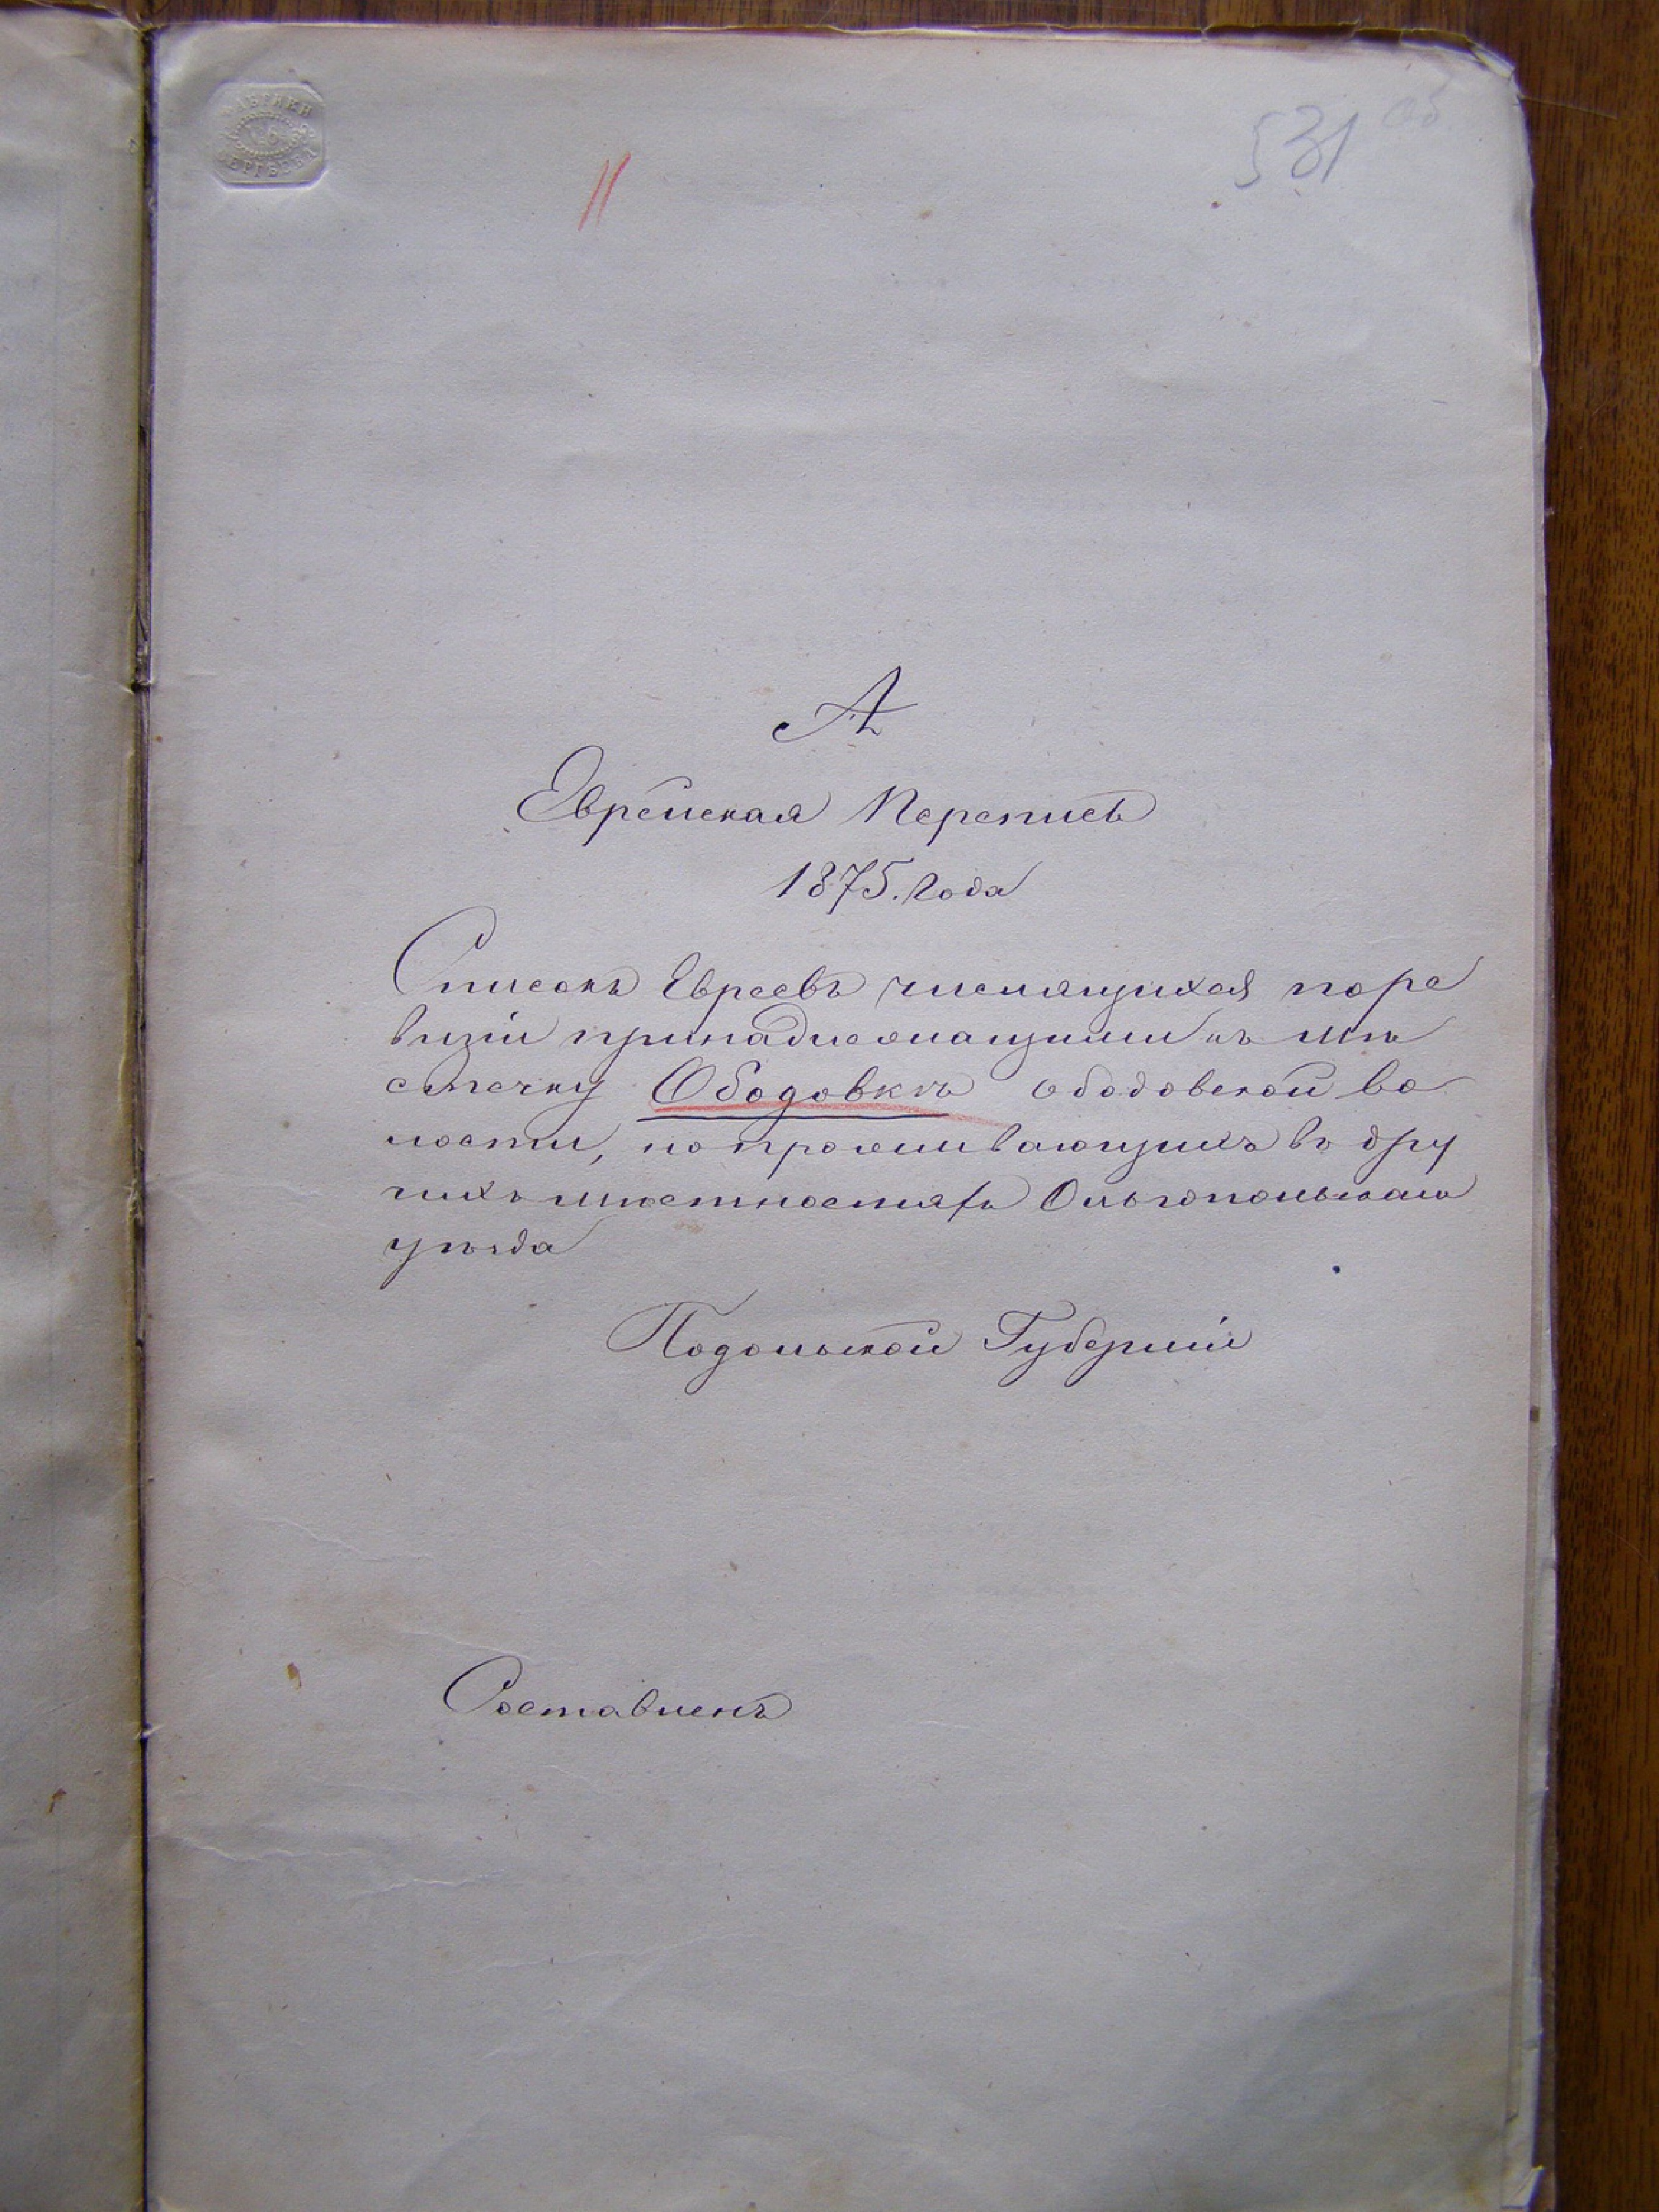 ФАБРИКИ
№ 6
СЕРГѢЕВА
11
531 об
А
Еврейская Перепись
1875. Года
Списокъ Евреевъ числящихся поре
визіи принадлежащими къ мѣ
стечку Ободовкѣ ободовской во
лости, но проживающихъ въ дру
гихъ мѣстностяхъ Ольгопольскаго
уѣзда
Подольской Губерніи
Составленъ